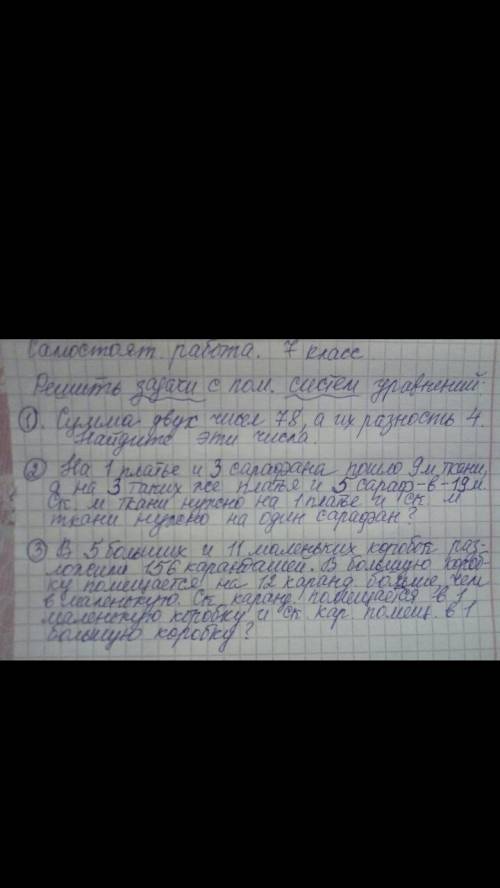 Самостоят. работа. 7 класс
Решить задачи с пом. систем уравнений:
① Сумма двух чисел 78, а их разность 4.
Найдите эти числа.
② На 1 платье и 3 сарафана пошло 9 м ткани,
а на 3 таких же платья и 5 сараф-в - 19 м.
Ск. м ткани нужно на 1 платье и ск. м
ткани нужно на один сарафан?
③ В 5 больших и 11 маленьких коробок раз-
ложили 156 карандашей. В большую короб-
ку помещается на 12 каранд. больше, чем
в маленькую. Ск. каранд. помещается в 1
маленькую коробку и ск. кар. помещ. в 1
большую коробку?